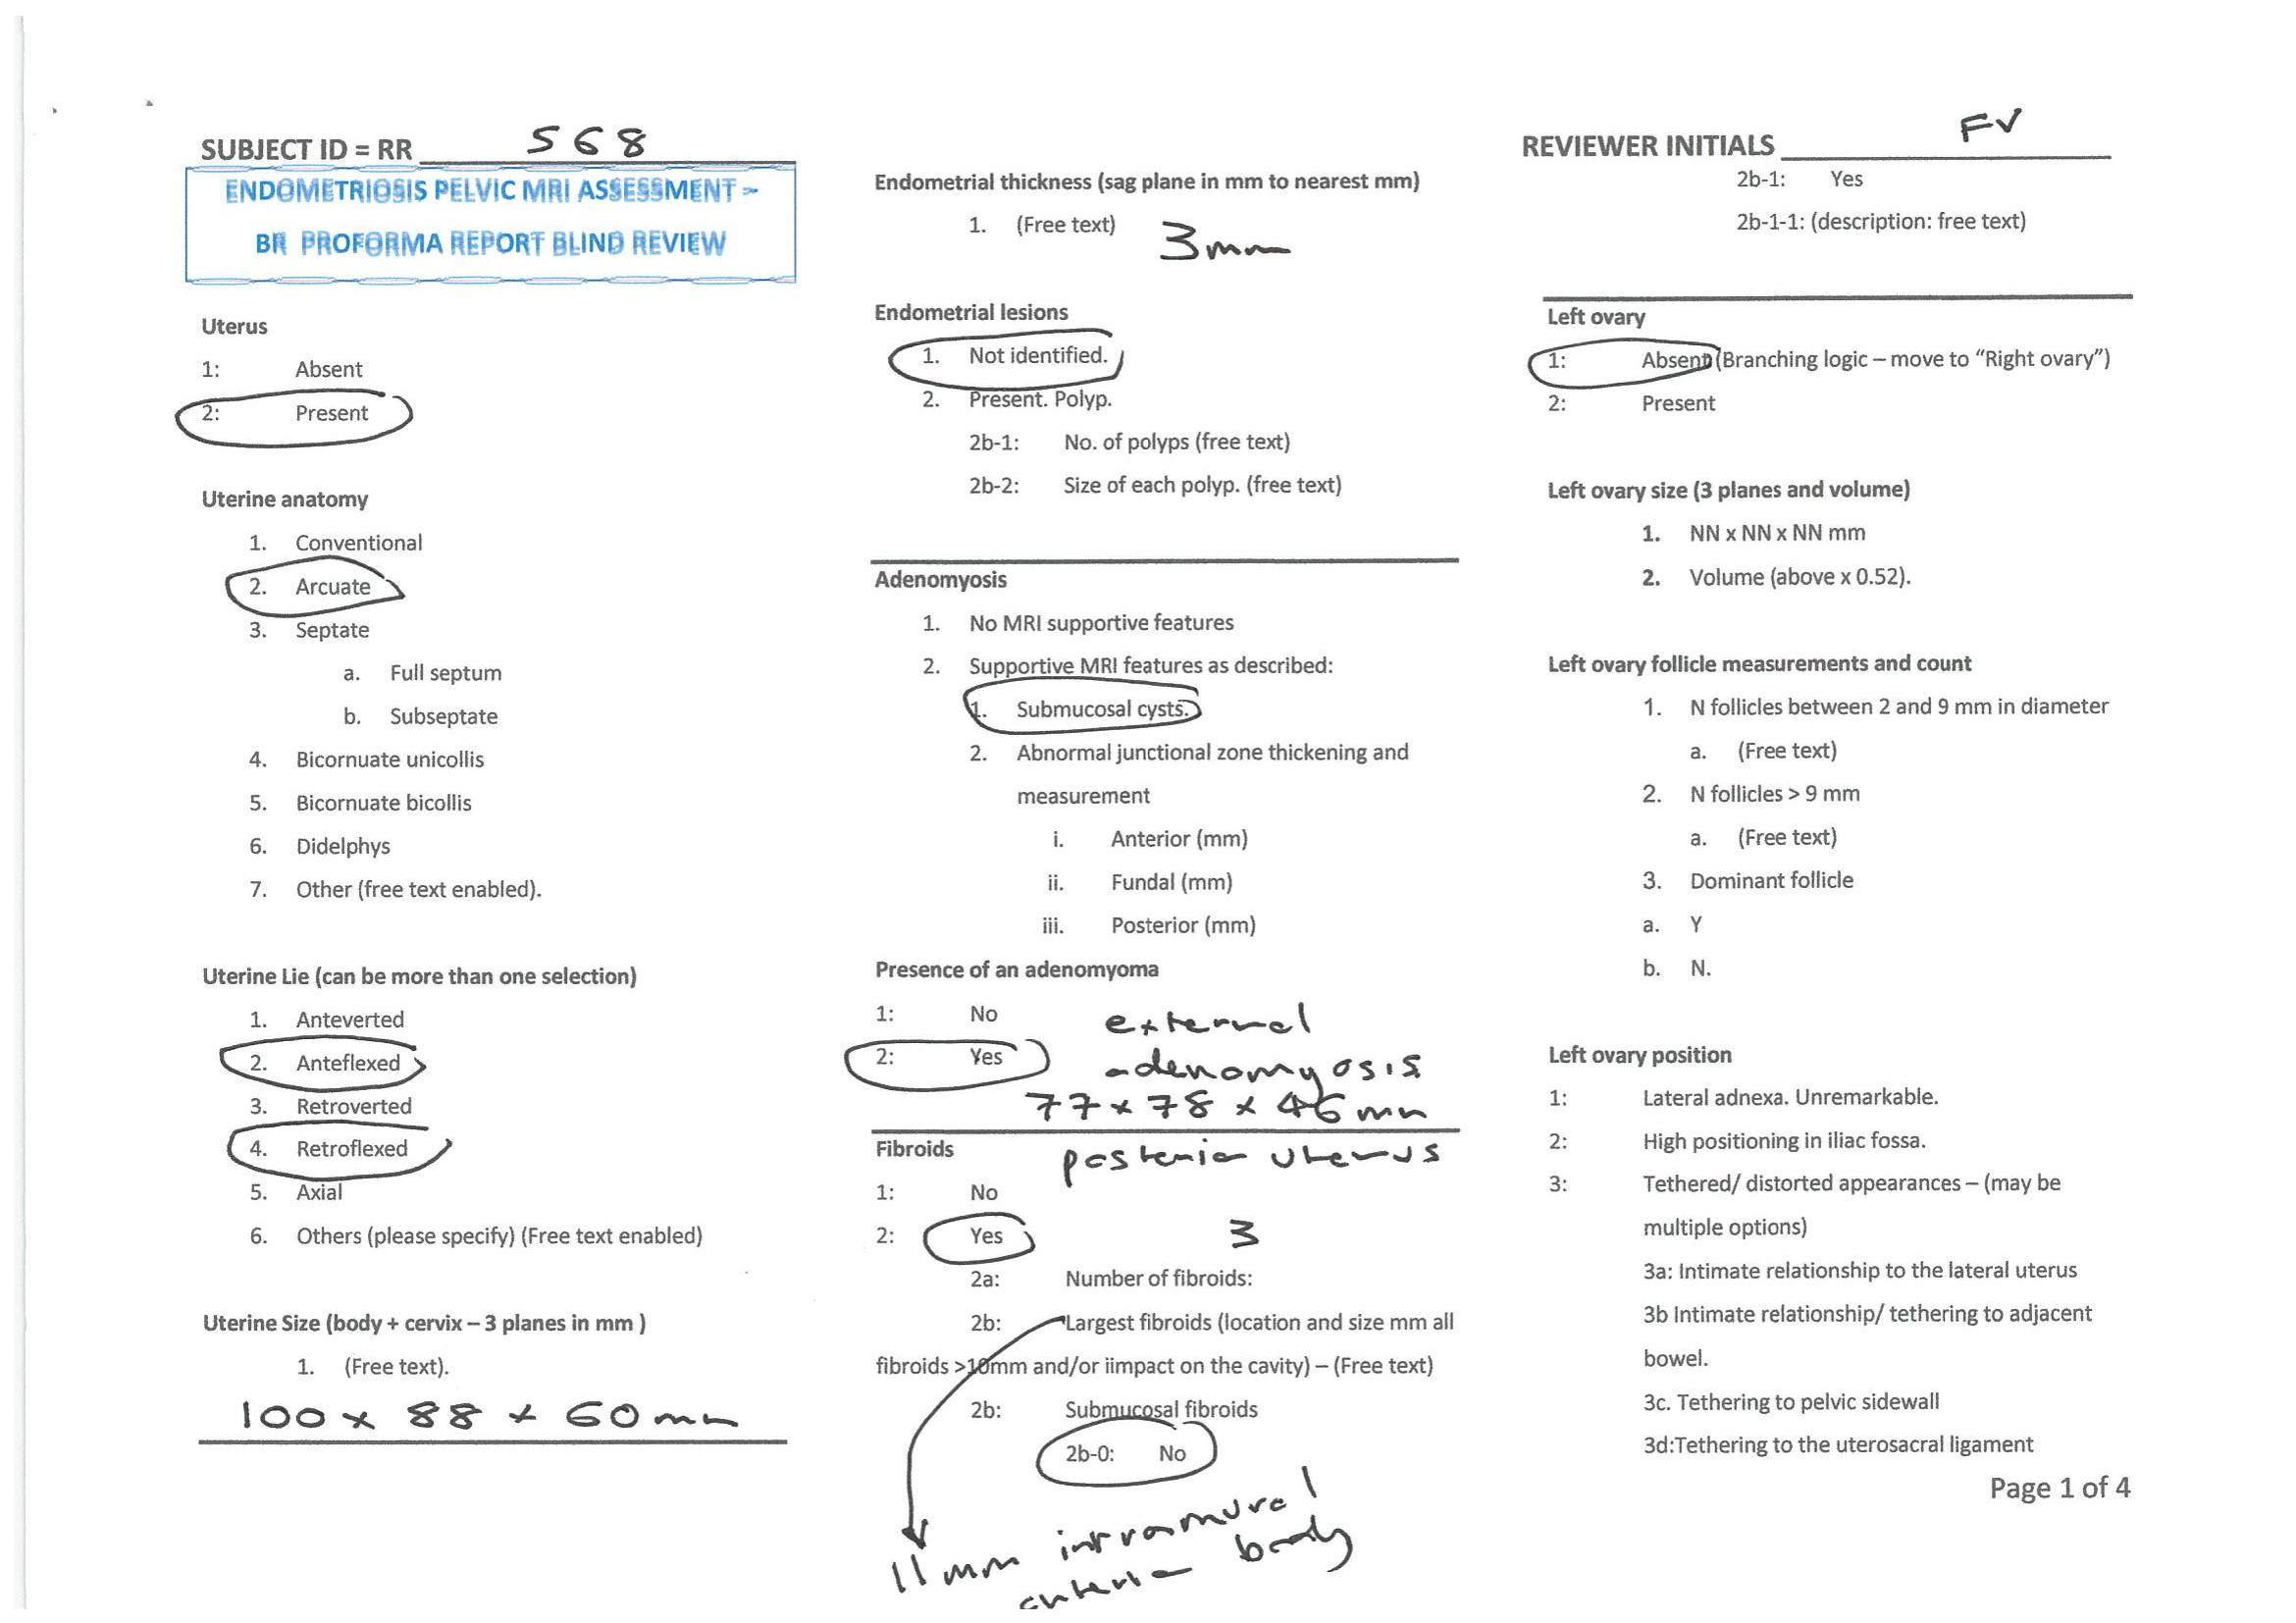 SUBJECT ID = RR 568
ENDOMETRIOSIS PELVIC MRI ASSESSMENT -
BR PROFORMA REPORT BLIND REVIEW
Uterus
1: Absent
2: Present
Uterine anatomy
1. Conventional
2. Arcuate
3. Septate
a. Full septum
b. Subseptate
4. Bicornuate unicollis
5. Bicornuate bicollis
6. Didelphys
7. Other (free text enabled).
Uterine Lie (can be more than one selection)
1. Anteverted
2. Anteflexed
3. Retroverted
4. Retroflexed
5. Axial
6. Others (please specify) (Free text enabled)
Uterine Size (body + cervix – 3 planes in mm )
1. (Free text).
100 x 88 x 60 mm
Endometrial thickness (sag plane in mm to nearest mm)
1. (Free text) 3mm
Endometrial lesions
1. Not identified.
2. Present. Polyp.
2b-1: No. of polyps (free text)
2b-2: Size of each polyp. (free text)
Adenomyosis
1. No MRI supportive features
2. Supportive MRI features as described:
1. Submucosal cysts.
2. Abnormal junctional zone thickening and
measurement
i. Anterior (mm)
ii. Fundal (mm)
iii. Posterior (mm)
Presence of an adenomyoma
1: No external
2: Yes adenomyosis
77 x 78 x 46 mm
Fibroids posterior uterus
1: No
2: Yes 3
2a: Number of fibroids:
2b: Largest fibroids (location and size mm all
fibroids >10mm and/or iimpact on the cavity) – (Free text)
2b: Submucosal fibroids
2b-0: No
11 mm intramural
anterior body
REVIEWER INITIALS FV
2b-1: Yes
2b-1-1: (description: free text)
Left ovary
1: Absent (Branching logic – move to “Right ovary”)
2: Present
Left ovary size (3 planes and volume)
1. NN x NN x NN mm
2. Volume (above x 0.52).
Left ovary follicle measurements and count
1. N follicles between 2 and 9 mm in diameter
a. (Free text)
2. N follicles > 9 mm
a. (Free text)
3. Dominant follicle
a. Y
b. N.
Left ovary position
1: Lateral adnexa. Unremarkable.
2: High positioning in iliac fossa.
3: Tethered/ distorted appearances – (may be
multiple options)
3a: Intimate relationship to the lateral uterus
3b Intimate relationship/ tethering to adjacent
bowel.
3c. Tethering to pelvic sidewall
3d:Tethering to the uterosacral ligament
Page 1 of 4